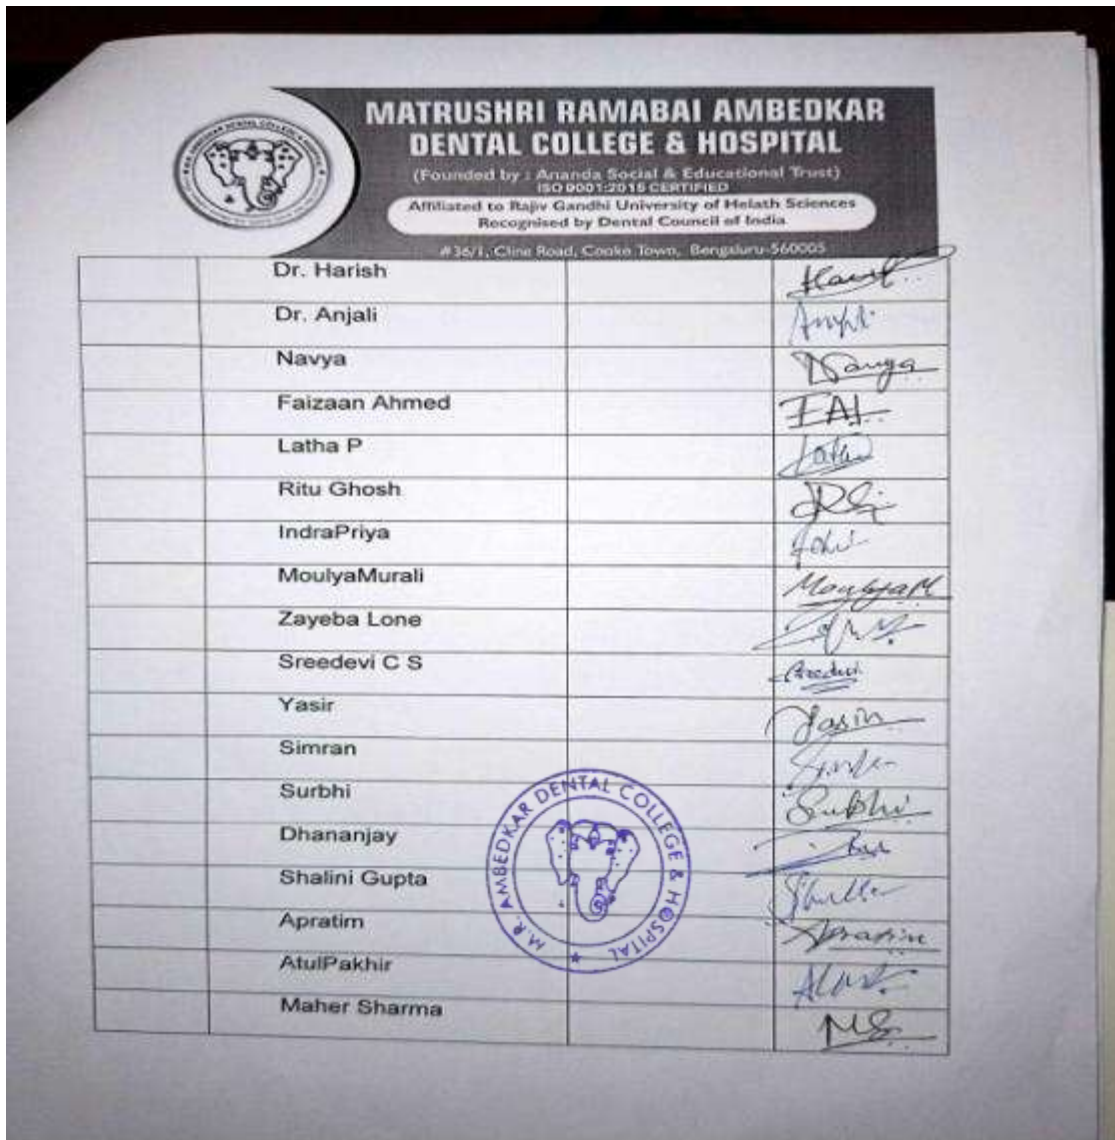 MATRUSHRI RAMABAI AMBEDKAR
DENTAL COLLEGE & HOSPITAL
(Founded by : Ananda Social & Educational Trust)
ISO 9001:2015 CERTIFIED
Affiliated to Rajiv Gandhi University of Helath Sciences
Recognised by Dental Council of India
#36/1, Cline Road, Cooke Town, Bengaluru-560005
Dr. Harish
Dr. Anjali
Navya
Faizaan Ahmed
Latha P
Ritu Ghosh
IndraPriya
MoulyaMurali MoulyaM
Zayeba Lone
Sreedevi C S
Yasir
Simran
Surbhi
Dhananjay
Shalini Gupta
Apratim
AtulPakhir
Maher Sharma
M.R. AMBEDKAR DENTAL COLLEGE & HOSPITAL